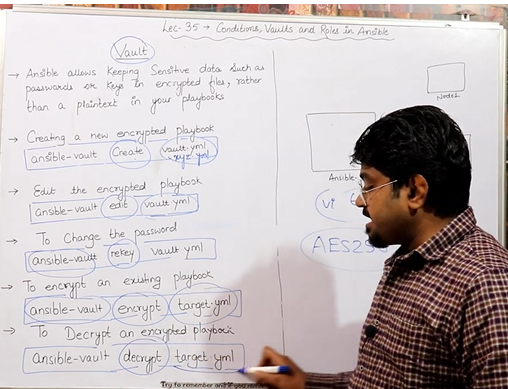 Lec-35 → Conditions, Vaults and Roles in Ansible
Vault
→ Ansible allows keeping Sensitive data such as
passwords or keys in encrypted files, rather
than a plaintext in your playbooks
→ Creating a new encrypted playbook
ansible-vault create vault.yml
xyz.yml
→ Edit the encrypted playbook
ansible-vault edit vault yml
→ To Change the password
ansible-vault rekey vault yml
→ To encrypt an existing playbook
ansible-vault encrypt target.yml
→ To Decrypt an encrypted playbook
ansible-vault decrypt target yml
Node1
Ansible-
vi
AES25
Try to remember and